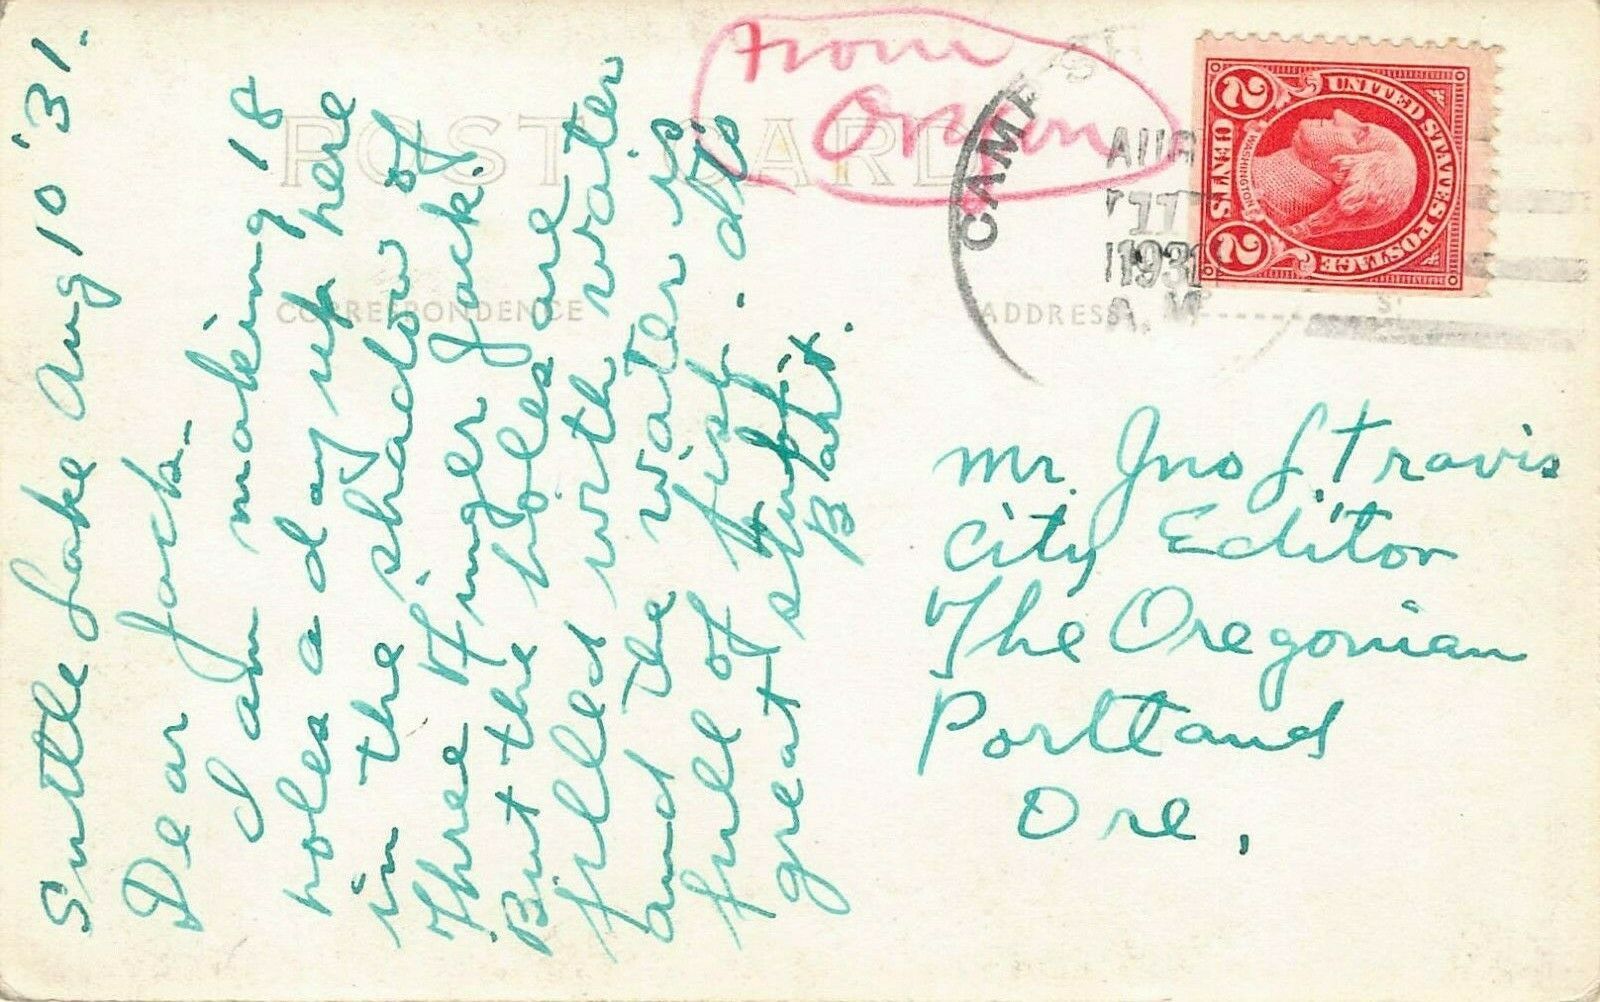 Suttle Lake Aug 10 '31.
Dear Jack-
I am making 18
holes a day up here
in the shadow of
Three Finger Jack.
But the holes are
filled with water
and the water is
full of fish. It's
great stuff.
Bart.
from
Oregon
POST CARD
CORRESPONDENCE
ADDRESS
CAMP S
AUG
11
1931
A.M.
UNITED STATES POSTAGE
WASHINGTON
2 CENTS 2
Mr. Jno L. Travis
City Editor
The Oregonian
Portland
Ore.